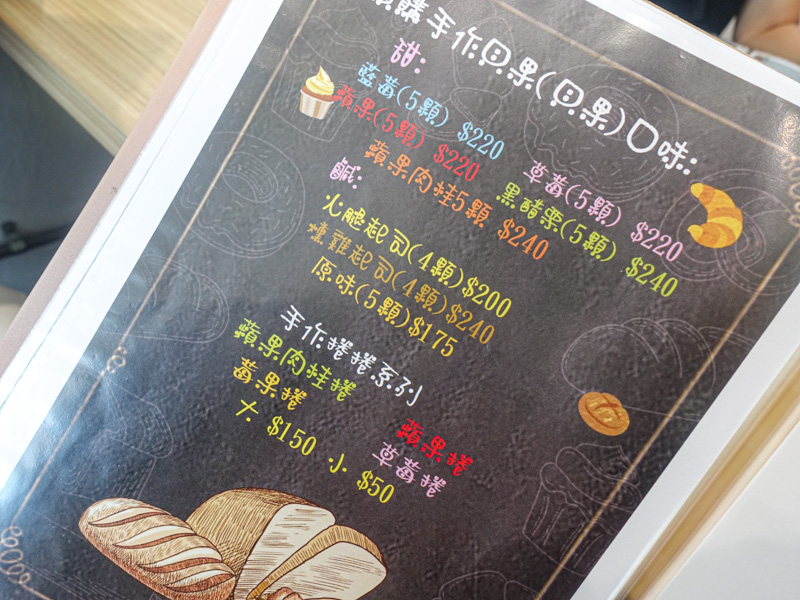 購手作貝果(貝果)口味:
甜:
藍莓(5顆) $220 草莓(5顆) $220
蘋果(5顆) $220 黑醋栗(5顆) $240
蘋果肉桂5顆 $240
鹹:
火腿起司(4顆)$200
燻雞起司(4顆)$240
原味(5顆)$175
手作捲捲系列
蘋果肉桂捲 蘋果捲
莓果捲 草莓捲
大 $150 小 $50